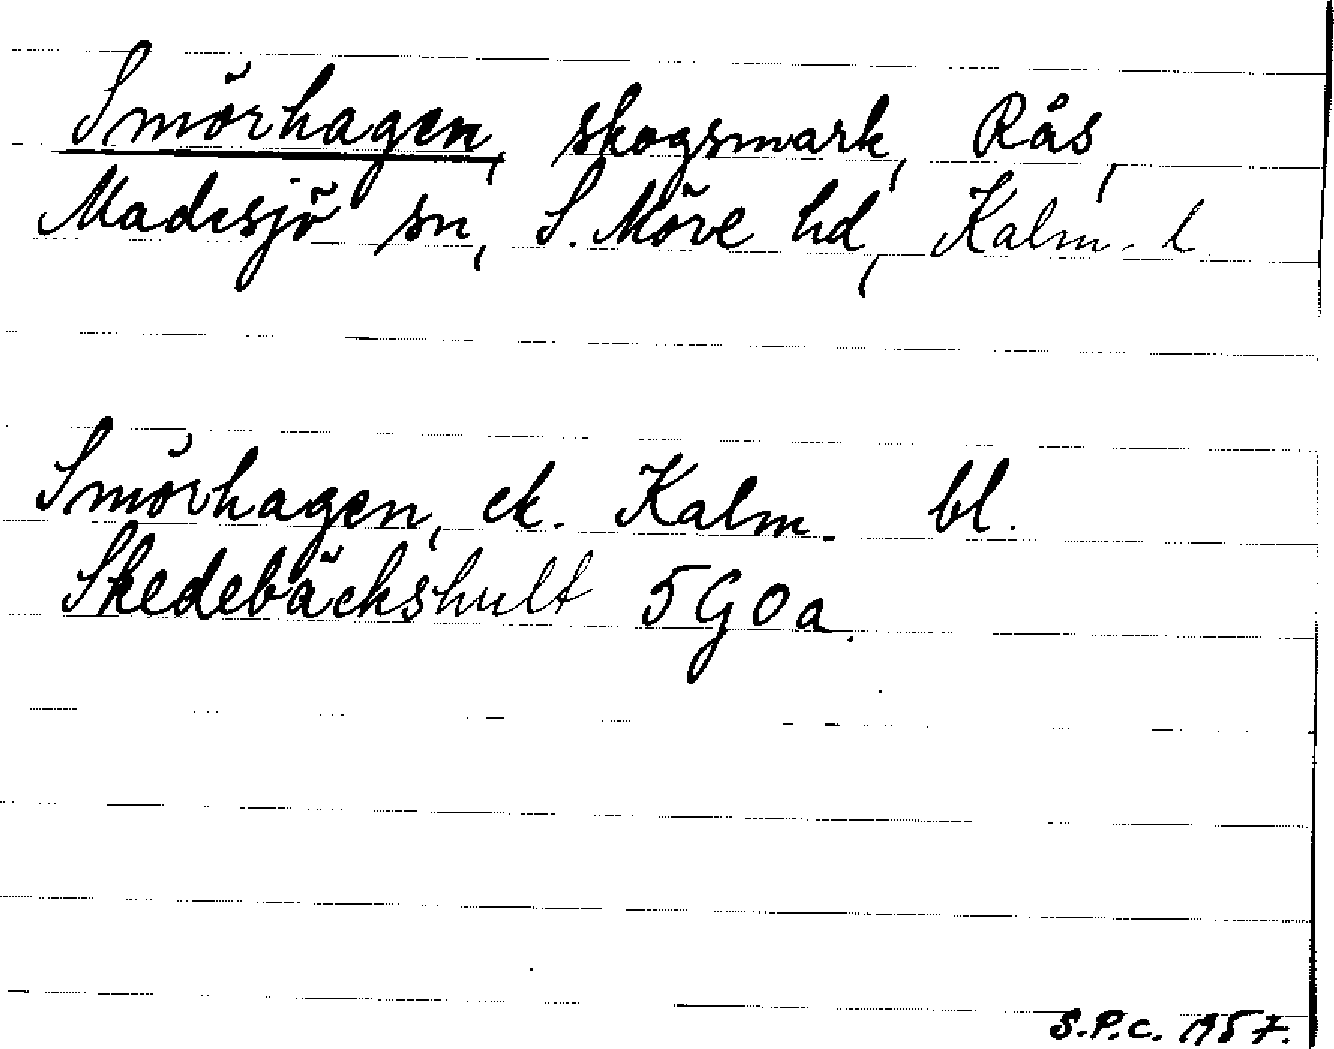 Smörhagen, skogsmark, Rås,
Madesjö sn, S. Möre hd, Kalm. l
Smörhagen, ek. Kalm. bl.
Skedebäckshult 5G0a.
S.P.C. 1957.